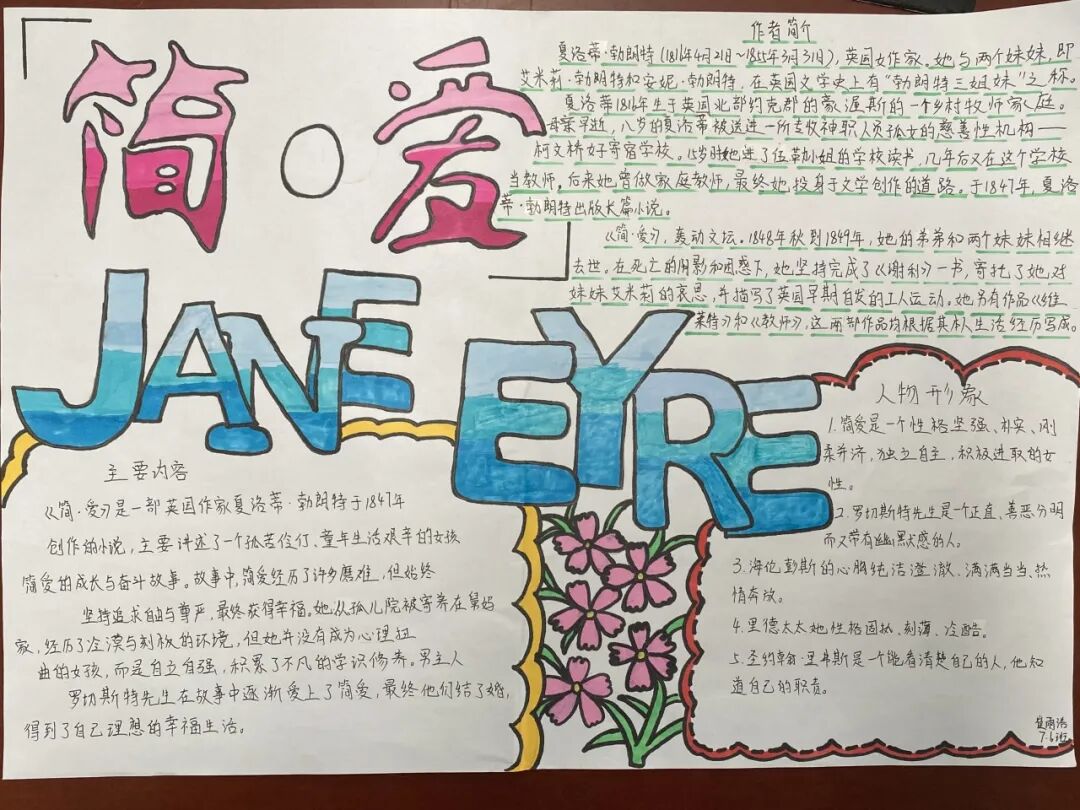 简·爱
JANE EYRE
作者简介
夏洛蒂·勃朗特(1816年4月21日~1855年3月31日),英国女作家。她与两个妹妹,即
艾米莉·勃朗特和安妮·勃朗特,在英国文学史上有“勃朗特三姐妹”之称。
夏洛蒂1816年生于英国北部约克郡的豪渥斯的一个乡村牧师家庭。
母亲早逝,八岁的夏洛蒂被送进一所专收神职人员孤女的慈善性机构——
柯文桥女子寄宿学校。15岁时她进了伍勒小姐的学校读书,几年后又在这个学校
当教师。后来她曾做家庭教师,最终她投身于文学创作的道路。于1847年,夏洛
蒂·勃朗特出版长篇小说。
《简·爱》,轰动文坛。1848年秋到1849年,她的弟弟和两个妹妹相继
去世。在死亡的阴影和困惑下,她坚持完成了《谢利》一书,寄托了她对
妹妹艾米莉的哀思,并描写了英国早期自发的工人运动。她另有作品《维
莱特》和《教师》,这两部作品均根据其本人生活经历写成。
主要内容
《简·爱》是一部英国作家夏洛蒂·勃朗特于1847年
创作的小说,主要讲述了一个孤苦伶仃、童年生活艰辛的女孩
简爱的成长与奋斗故事。故事中,简爱经历了许多磨难,但始终
坚持追求自由与尊严,最终获得幸福。她从孤儿院被寄养在舅妈
家,经历了冷漠与刻板的环境,但她并没有成为心理扭
曲的女孩,而是自立自强,积累了不凡的学识修养。男主人
罗切斯特先生在故事中逐渐爱上了简爱,最终他们结了婚,
得到了自己理想的幸福生活。
人物形象
1.简爱是一个性格坚强、朴实、刚
柔并济,独立自主,积极进取的女
性。
2.罗切斯特先生是一个正直、善恶分明
而又带有幽默感的人。
3.海伦彭斯的心胸纯洁澄澈、满满当当、热
情奔放。
4.里德太太她性格固执、刻薄、冷酷。
5.圣约翰·里弗斯是一个能看清楚自己的人,他知
道自己的职责。
7.6班